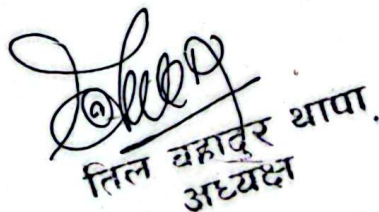 तिल बहादुर थापा.
अध्यक्ष